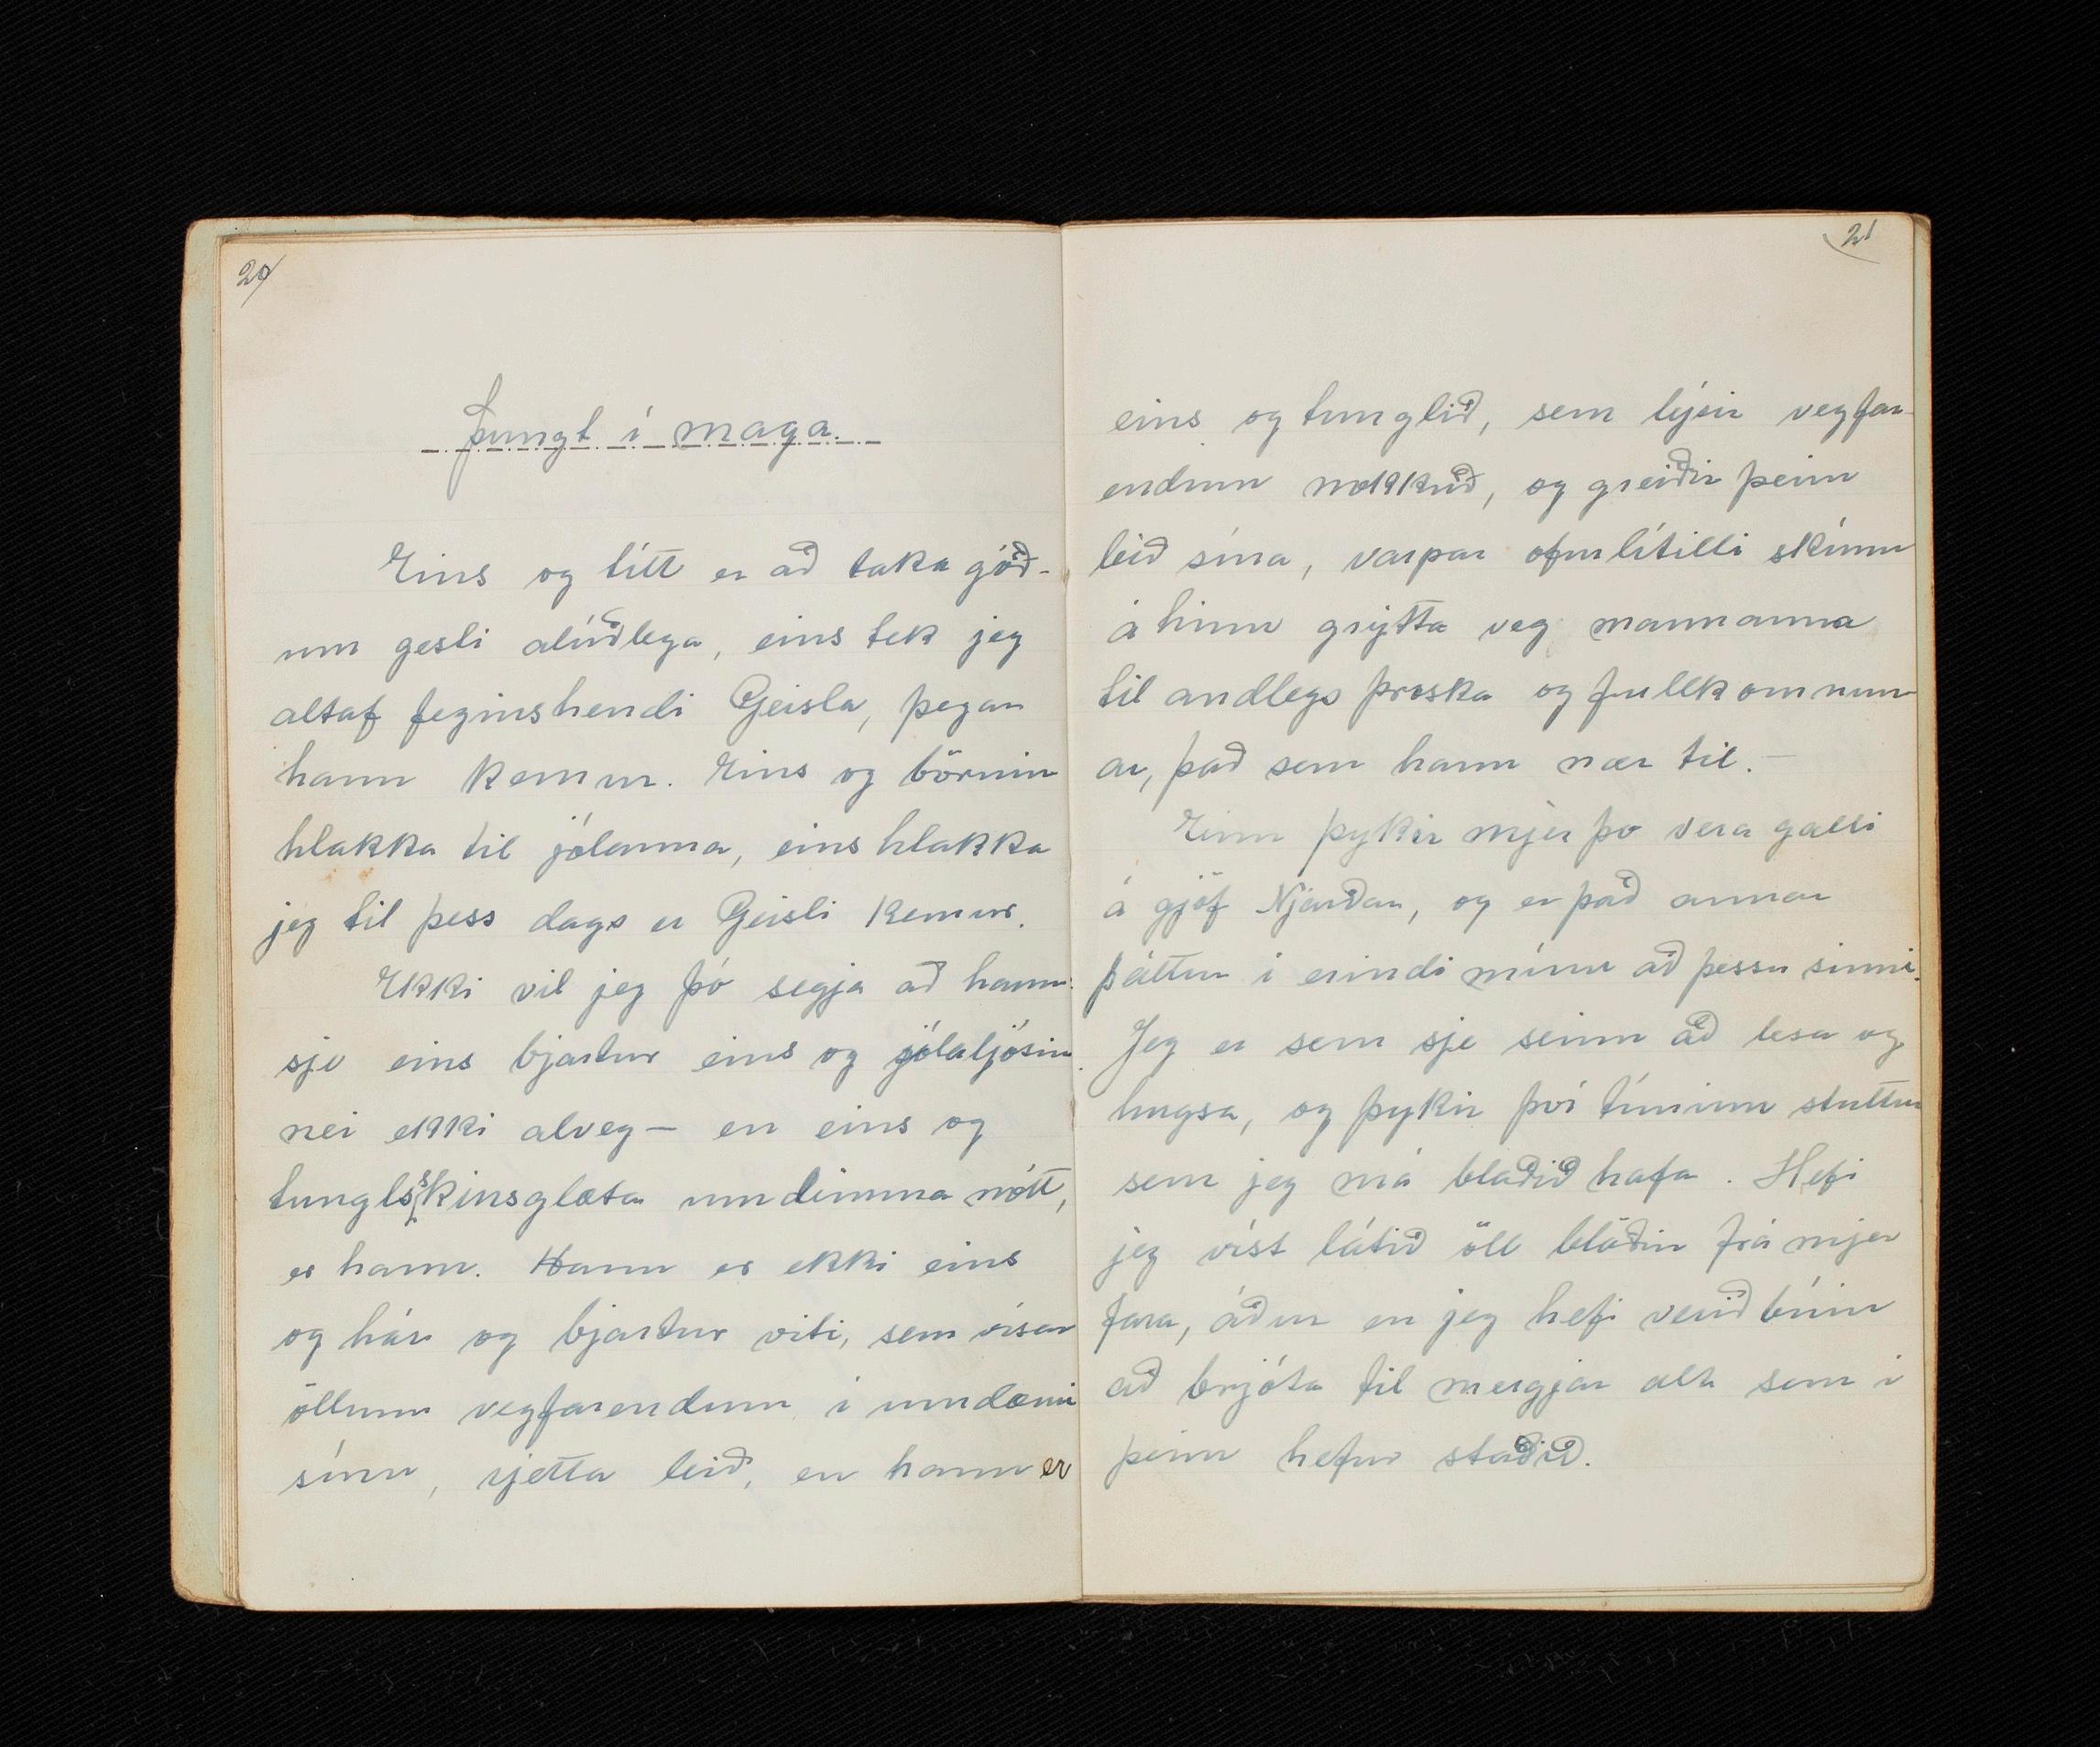 20
Þungt í maga.
Eins og títt er að taka góð-
um gesti alúðlega, eins tek jeg
altaf feginshendi Geisla, þegar
hann kemur. Eins og börnin
hlakka til jólanna, eins hlakka
jeg til þess dags er Geisli kemur.
Ekki vil jeg þó segja að hann
sje eins bjartur eins og jólaljósin
nei ekki alveg – en eins og
tunglsskinsglæta um dimma nótt,
er hann. Hann er ekki eins
og hár og bjartur viti, sem vísar
öllum vegfarendum í umdæmi
sínu, rjetta leið, en hann er
21
eins og tunglið, sem lýsir vegfar-
endum nokkuð, og greiðir þeim
leið sína, varpar ofurlítilli skímu
á hinn grýtta veg mannanna
til andlegs þroska og fullkomnun
ar, það sem hann nær til. –
Einn þykir mjer þo vera galli
á gjöf Njarðar, og er það annar
þáttur í erindi mínu að þessu sinni.
Jeg er sem sje seinn að lesa og
hugsa, og þykir því tíminn stuttur
sem jeg má blaðið hafa. Hefi
jeg víst látið öll blöðin frá mjer
fara, áður en jeg hefi verið búin
að brjóta til mergjar alt sem í
þeim hefur staðið.